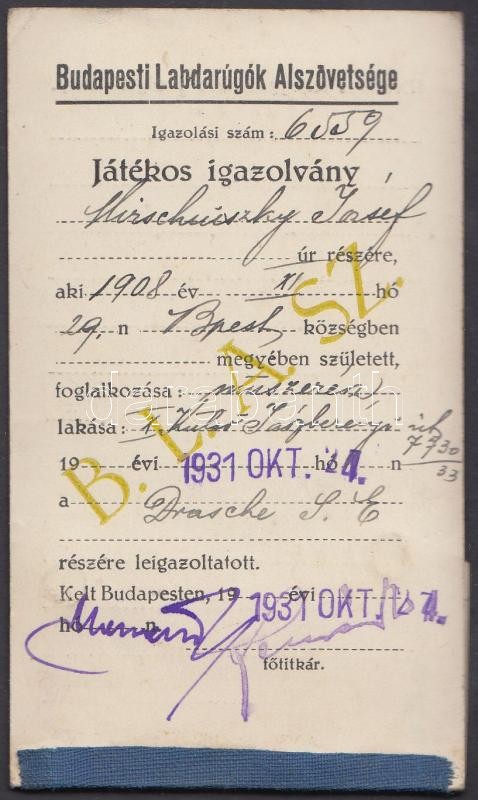 Budapesti Labdarúgók Alszövetsége
Igazolási szám: 6559
Játékos igazolvány
József
úr részére,
aki 1908 év XI hó
29. n Bpest községben
megyében született,
foglalkozása: műszerész
lakása: X. Külső Jászberényi út
7730
33
19 évi 1931 OKT. hó n
a Drasche S. E
részére leigazoltatott.
Kelt Budapesten, 19 évi 1931 OKT.
hó n.
főtitkár.
B. L. A. SZ.
darabanth